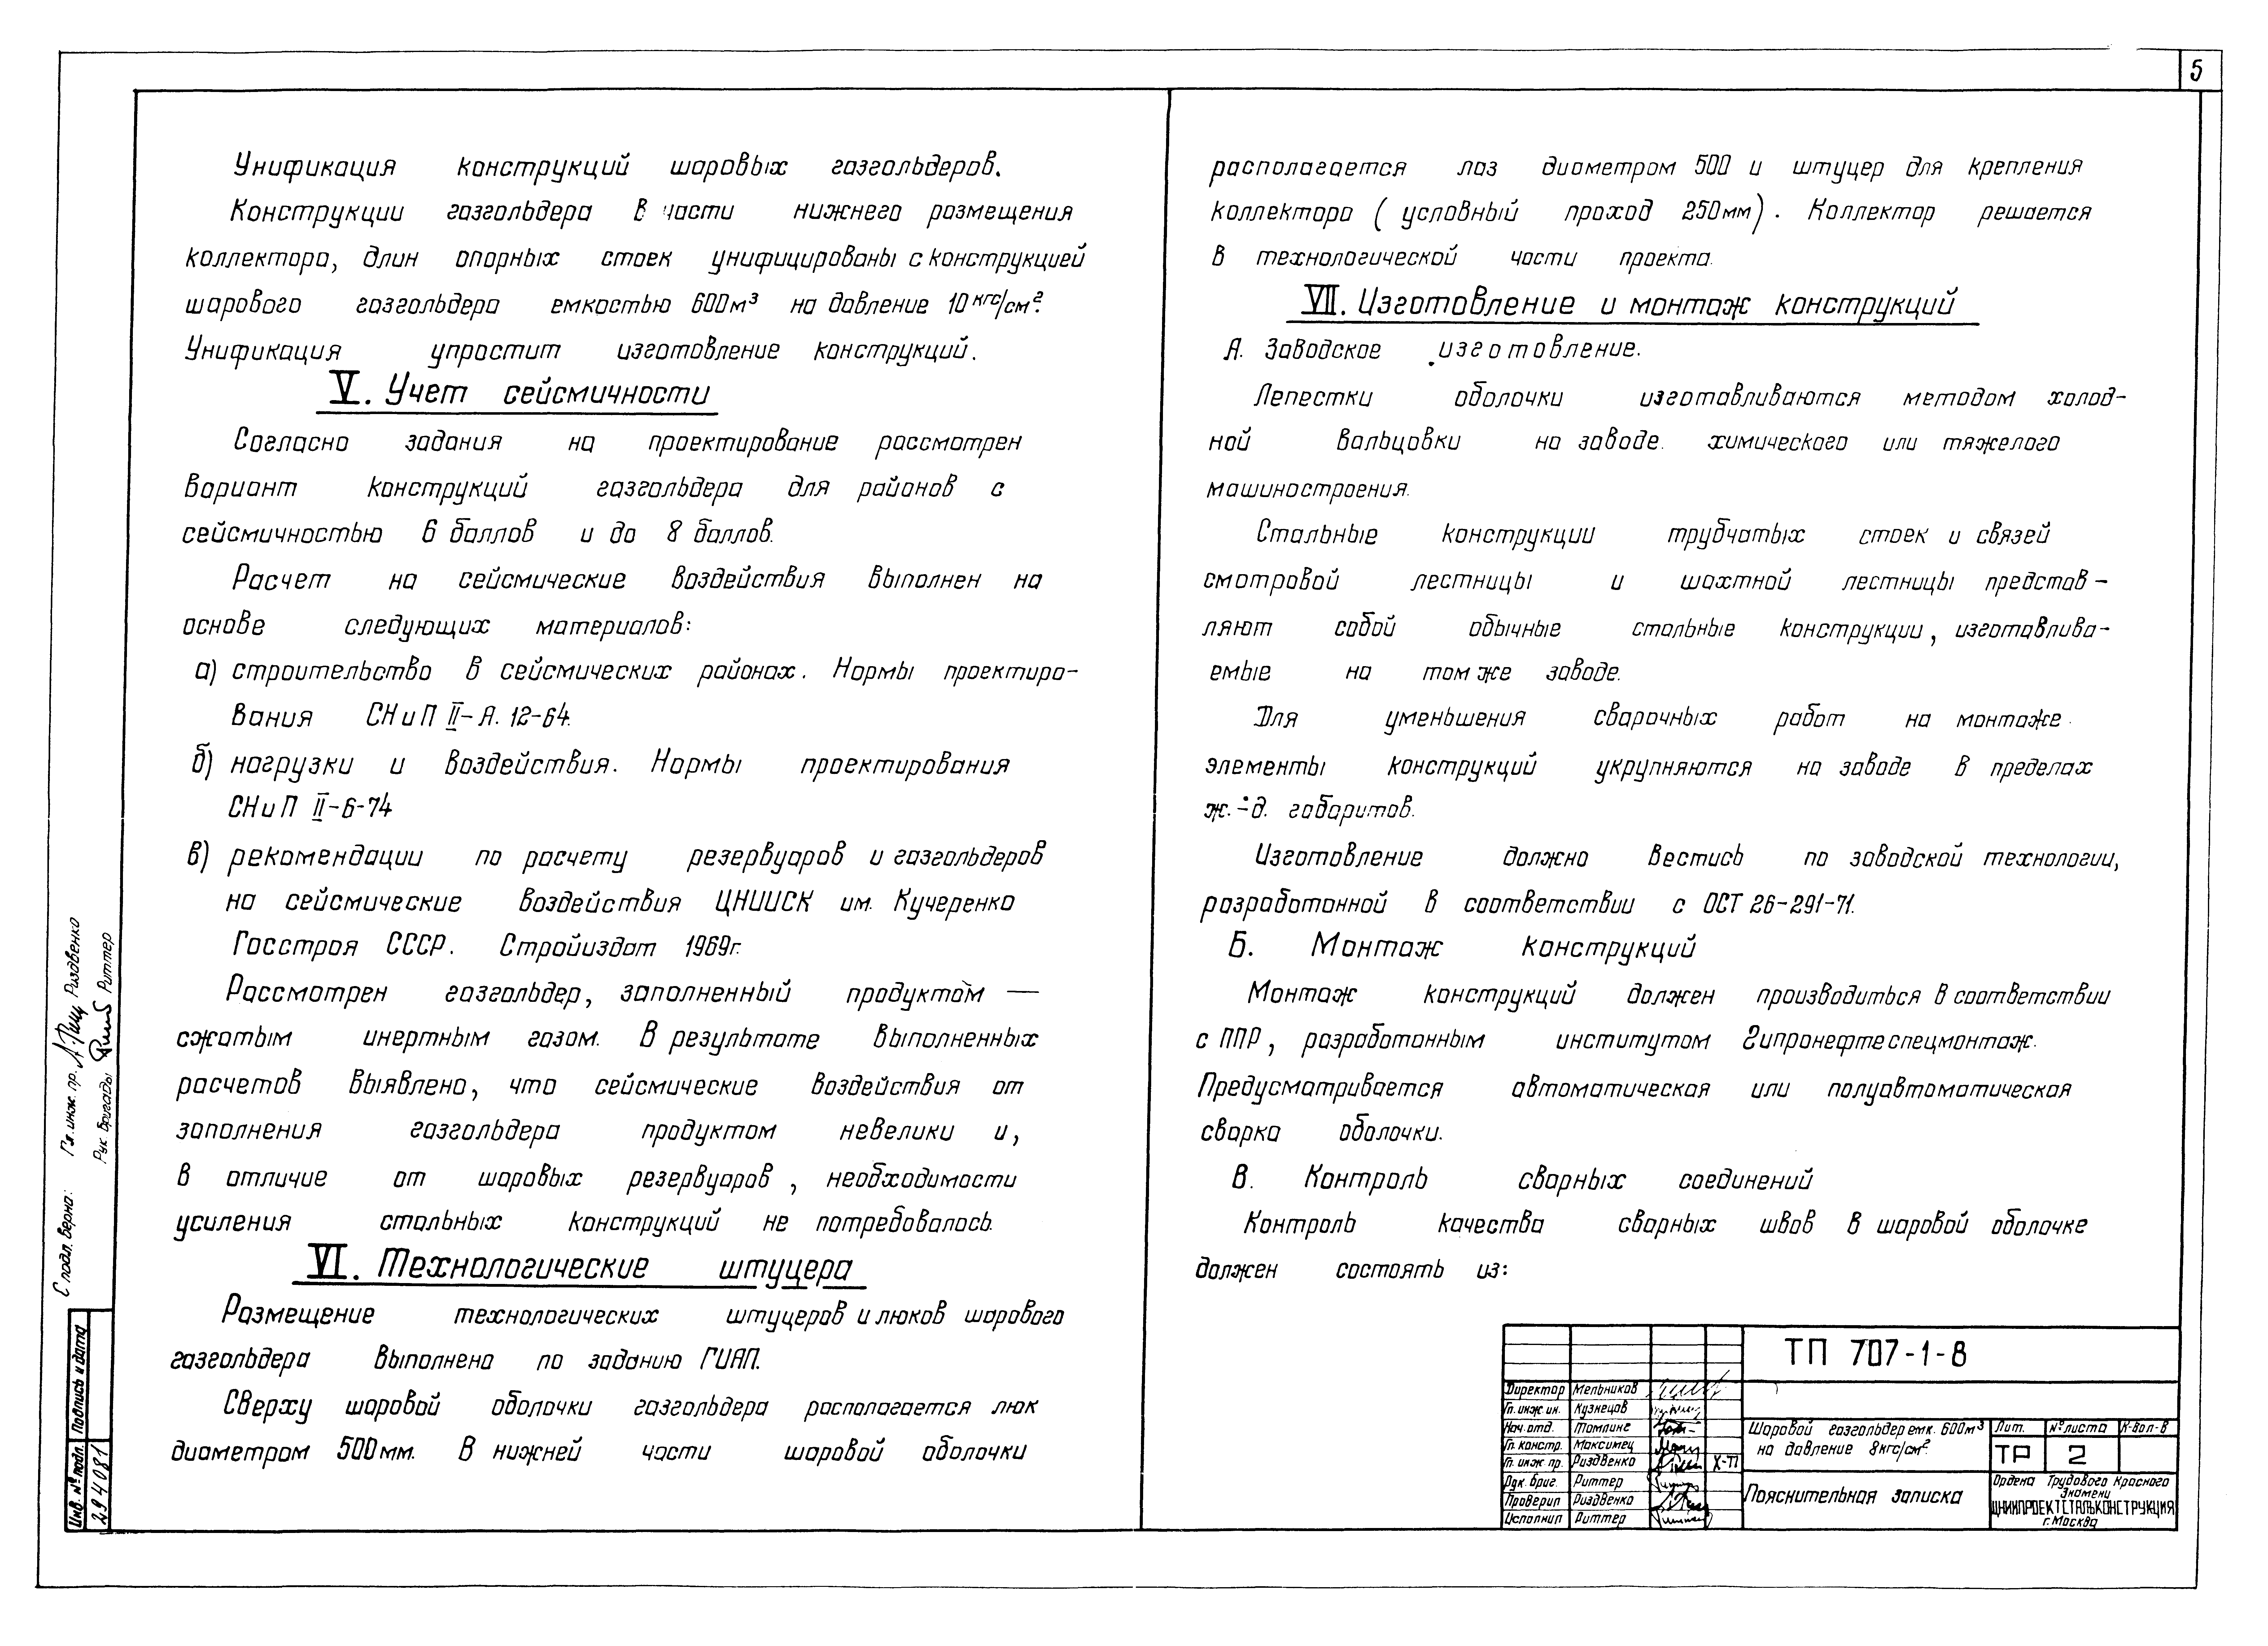 5
Унификация конструкций шаровых газгольдеров.
Конструкции газгольдера в части нижнего размещения
коллектора, длин опорных стоек унифицированы с конструкцией
шарового газгольдера емкостью 600м³ на давление 10 кгс/см².
Унификация упростит изготовление конструкций.
V. Учет сейсмичности
Согласно задания на проектирование рассмотрен
вариант конструкций газгольдера для районов с
сейсмичностью 6 баллов и до 8 баллов.
Расчет на сейсмические воздействия выполнен на
основе следующих материалов:
а) строительство в сейсмических районах. Нормы проектиро-
вания СНиП II-А. 12-64.
б) нагрузки и воздействия. Нормы проектирования
СНиП II-6-74
в) рекомендации по расчету резервуаров и газгольдеров
на сейсмические воздействия ЦНИИСК им. Кучеренко
Госстроя СССР. Стройиздат 1969г.
Рассмотрен газгольдер, заполненный продуктом —
сжатым инертным газом. В результате выполненных
расчетов выявлено, что сейсмические воздействия от
заполнения газгольдера продуктом невелики и,
в отличие от шаровых резервуаров, необходимости
усиления стальных конструкций не потребовалось.
VI. Технологические штуцера
Размещение технологических штуцеров и люков шарового
газгольдера выполнено по заданию ГИАП.
Сверху шаровой оболочки газгольдера располагается люк
диаметром 500мм. В нижней части шаровой оболочки
располагается лаз диаметром 500 и штуцер для крепления
коллектора (условный проход 250мм). Коллектор решается
в технологической части проекта.
VII. Изготовление и монтаж конструкций
А. Заводское изготовление.
Лепестки оболочки изготавливаются методом холод-
ной вальцовки на заводе. химического или тяжелого
машиностроения.
Стальные конструкции трубчатых стоек и связей
смотровой лестницы и шахтной лестницы представ-
ляют собой обычные стальные конструкции, изготавлива-
емые на том же заводе.
Для уменьшения сварочных работ на монтаже
элементы конструкций укрупняются на заводе в пределах
ж.-д. габаритов.
Изготовление должно вестись по заводской технологии,
разработанной в соответствии с ОСТ 26-291-71.
Б. Монтаж конструкций
Монтаж конструкций должен производиться в соответствии
с ППР, разработанным институтом Гипронефтеспецмонтаж.
Предусматривается автоматическая или полуавтоматическая
сварка оболочки.
В. Контроль сварных соединений
Контроль качества сварных швов в шаровой оболочке
должен состоять из:
С подл. верно: Гл. инж. пр. Риздвенко
Рук бригады Риттер
Инв. № подл. Подпись и дата
294081
ТП 707-1-8
Директор Мельников
Гл. инж ин. Кузнецов
Нач. отд.
Гл. констр. Максимец
Гл. инж пр. Риздвенко
Рук. бриг. Риттер
Проверил Риздвенко
Исполнил Риттер
Шаровой газгольдер емк. 600м³
на давление 8кгс/см².
Пояснительная записка
Лит. № листа К-вол-в
ТР 2
Ордена Трудового Красного
Знамени
ЦНИИПРОЕКТСТАЛЬКОНСТРУКЦИЯ
г. Москва